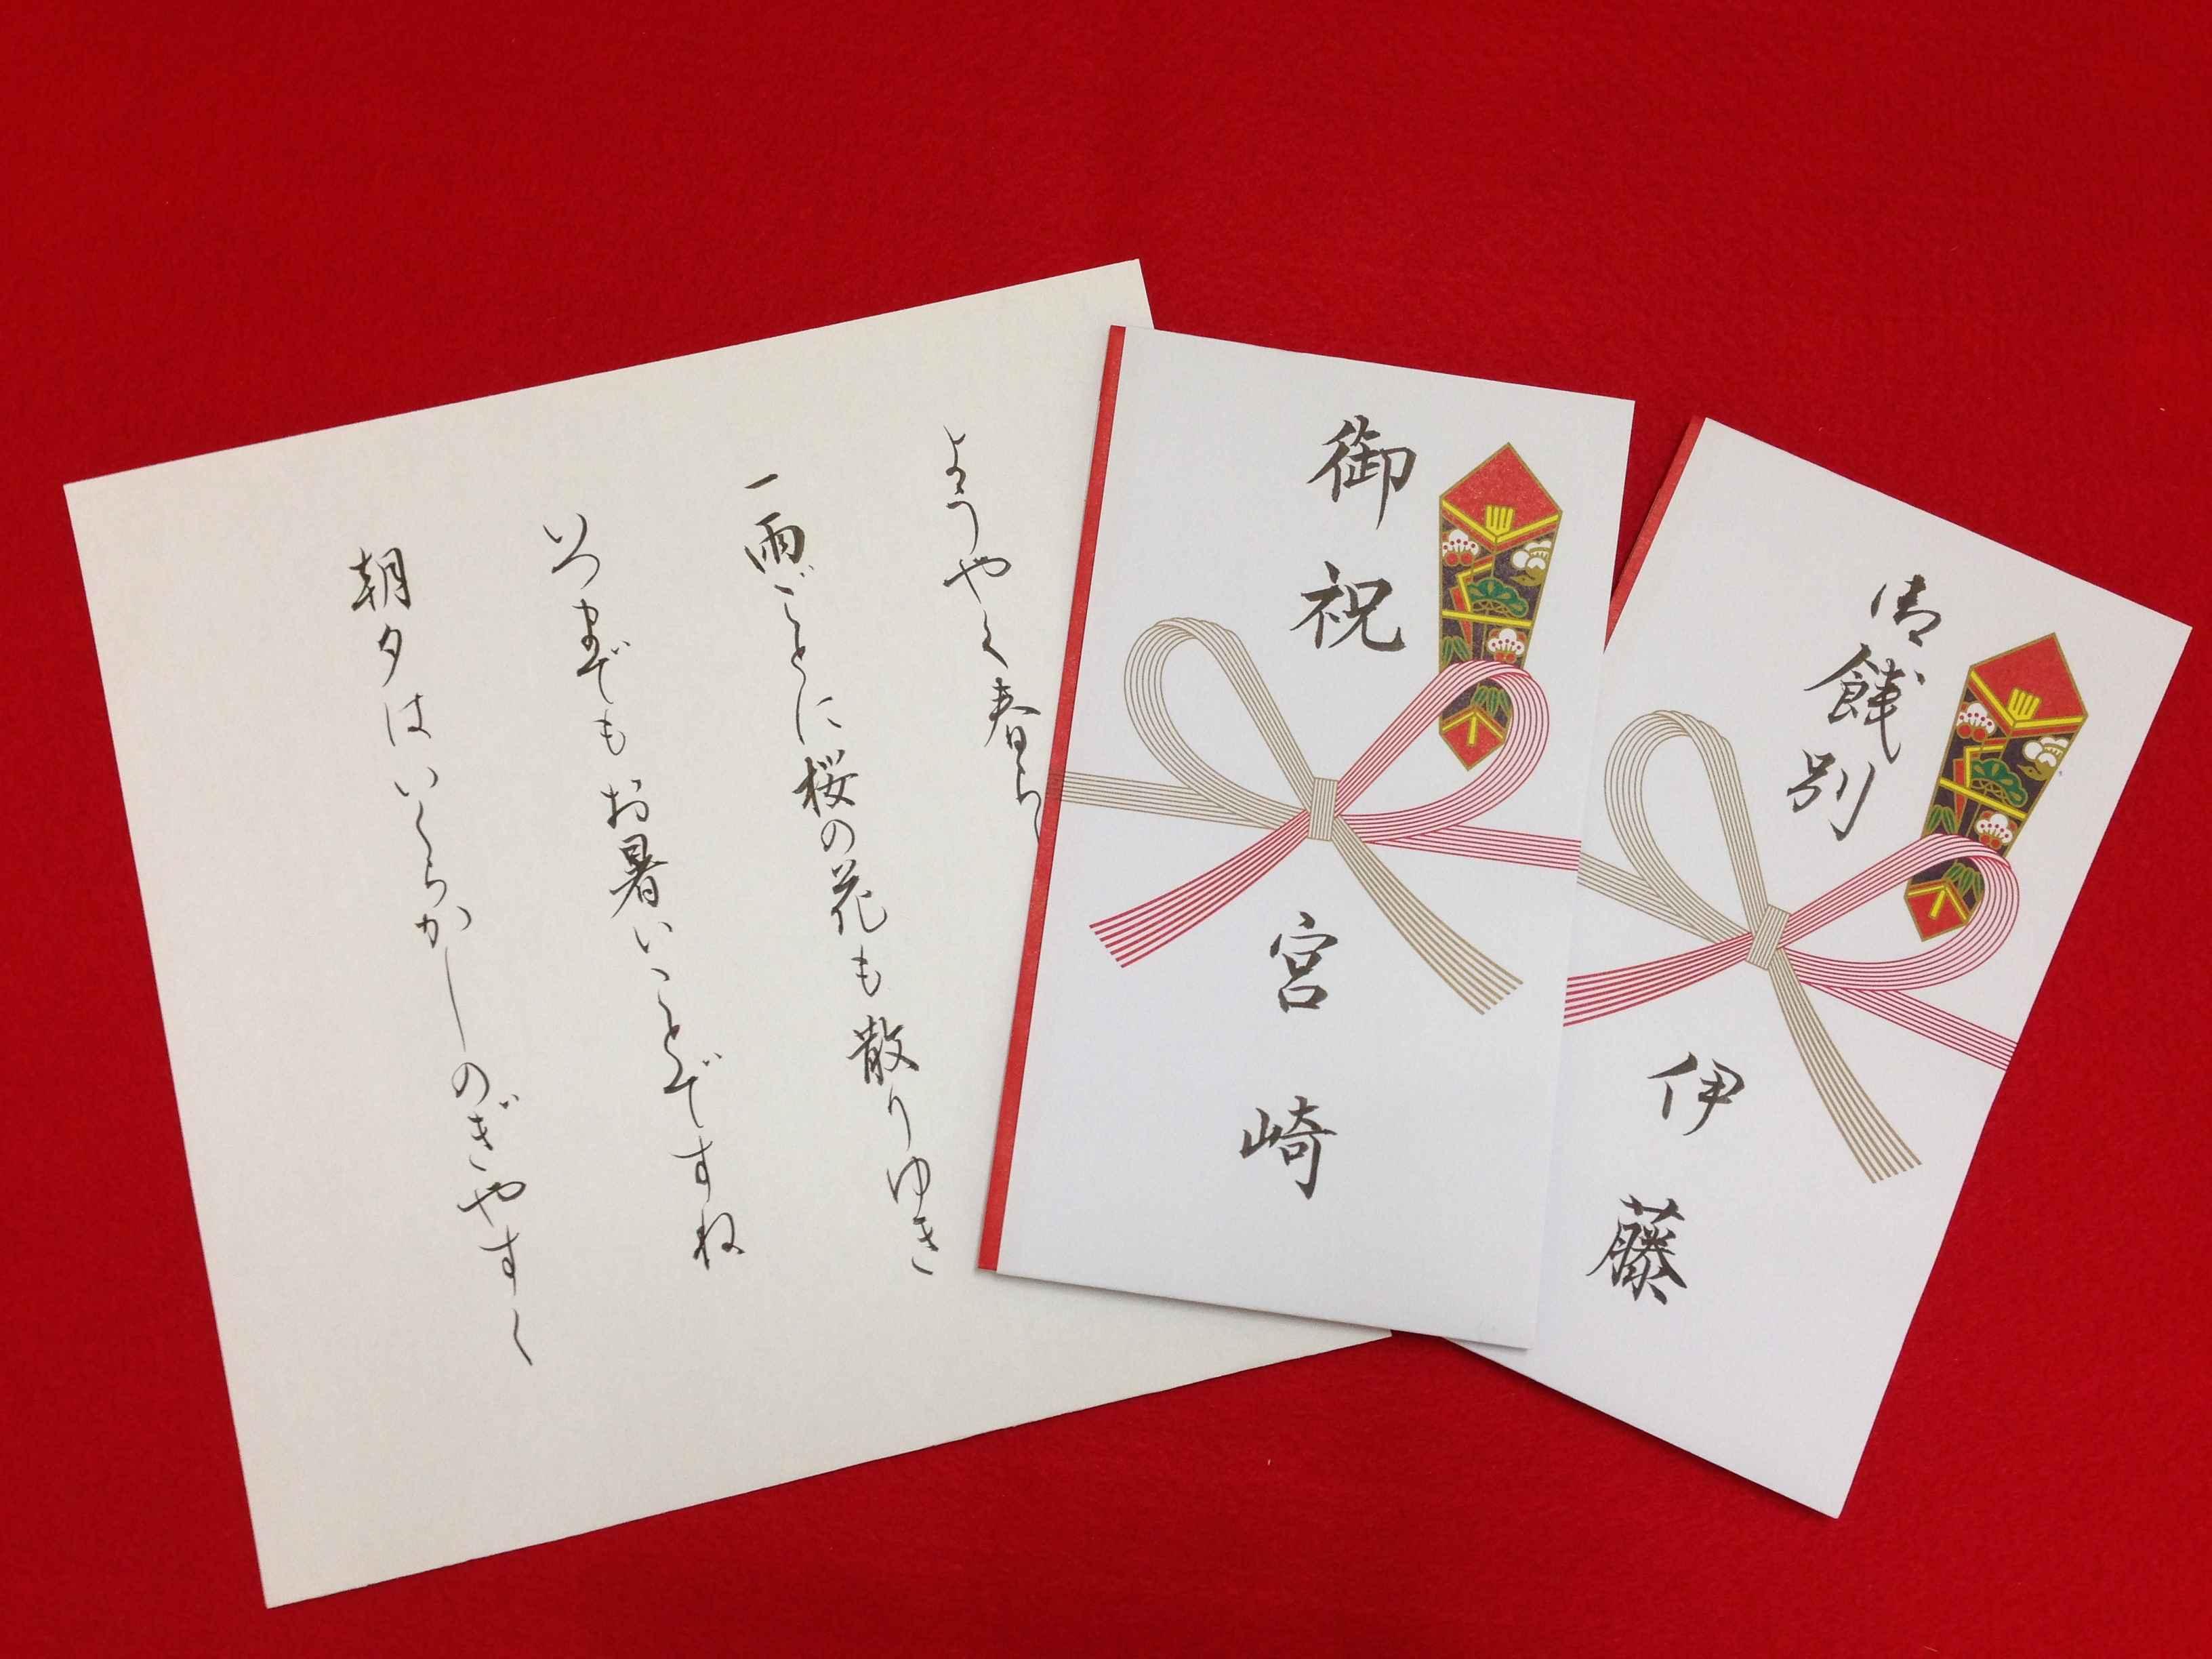 ようやく春ら
一雨ごとに桜の花も散りゆき
いつまでもお暑いことですね
朝夕はいくらかしのぎやすく
御祝
宮崎
御餞別
伊藤